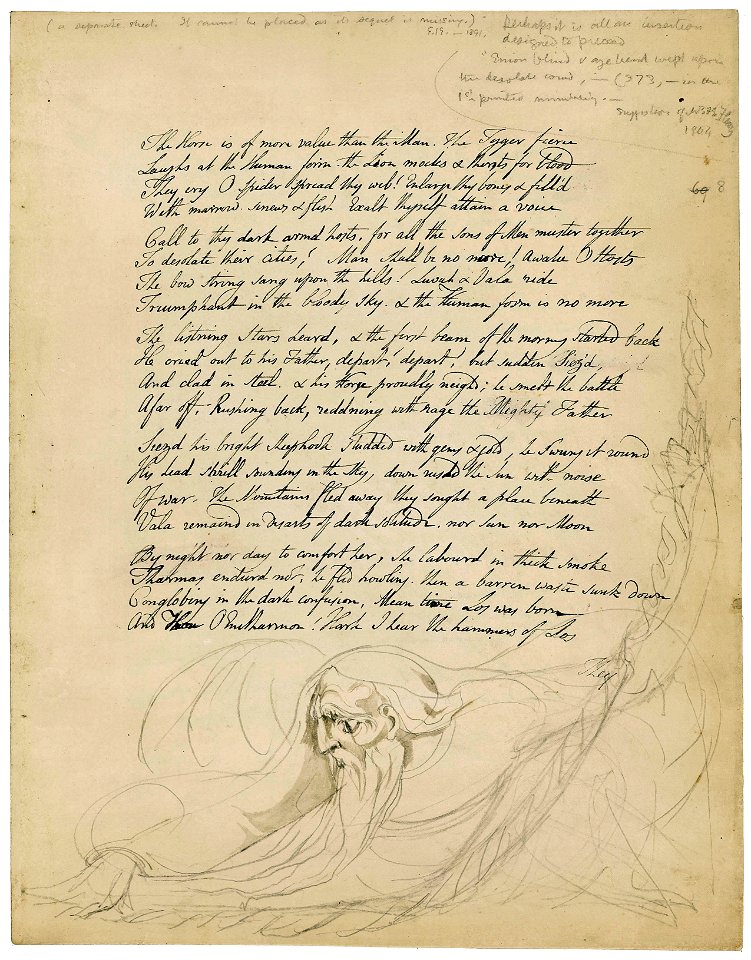 (a separate sheet. It cannot be placed as its sequel is missing.)
E.J.E. – 1891.
Perhaps it is all an insertion
designed to precede
"Enion blind & age bent wept upon
the desolate wind, — (373, — in the
1st printed numbering. —
1904
69 8
The Horse is of more value than the Man. The Tyger fierce
Laughs at the Human form. the Lion mocks & thirsts for blood
They cry O Spider spread thy web! Enlarge thy bones & fill'd
With marrow. sinews & flesh Exalt thyself attain a voice
Call to thy dark armd hosts, for all the sons of Men muster together
To desolate their cities! Man shall be no more! Awake O Hosts
The bow string sang upon the hills! Luvah & Vala ride
Triumphant in the bloody sky. & the Human form is no more
The listning Stars heard, & the first beam of the morning started back
He cried out to his Father, depart! depart! but sudden Siez'd
And clad in steel. & his Horse proudly neighd; he smelt the battle
Afar off, Rushing back, reddning with rage the Mighty Father
Siezd his bright Sheephook studded with gems & gold, he Swung it round
His head shrill sounding in the sky, down rushd the Sun with noise
Of war. The Mountains fled away they sought a place beneath
Vala remaind in desarts of dark solitude. nor Sun nor Moon
By night nor day to comfort her, she labourd in thick smoke
Tharmas endurd not, he fled howling. then a barren waste sunk down
Conglobing in the dark confusion, Mean time Los was born
And Thou O Enitharmon! Hark I hear the hammers of Los
They